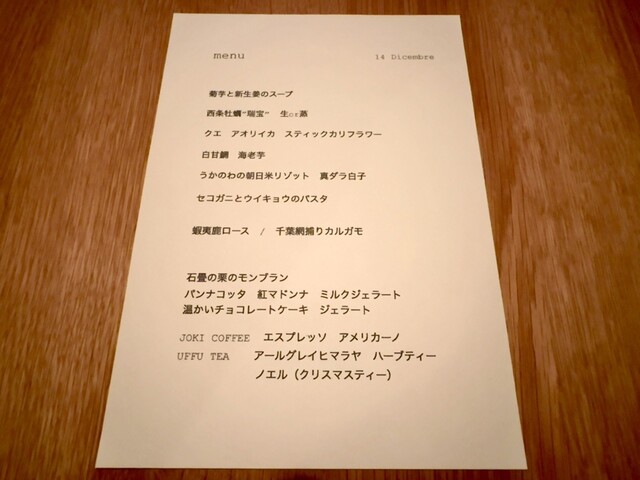 menu 14 Dicembre
菊芋と新生姜のスープ
西条牡蠣"瑞宝" 生or蒸
クエ アオリイカ スティックカリフラワー
白甘鯛 海老芋
うかのわの朝日米リゾット 真ダラ白子
セコガニとウイキョウのパスタ
蝦夷鹿ロース / 千葉網捕りカルガモ
石畳の栗のモンブラン
パンナコッタ 紅マドンナ ミルクジェラート
温かいチョコレートケーキ ジェラート
JOKI COFFEE エスプレッソ アメリカーノ
UFFU TEA アールグレイヒマラヤ ハーブティー
ノエル（クリスマスティー）